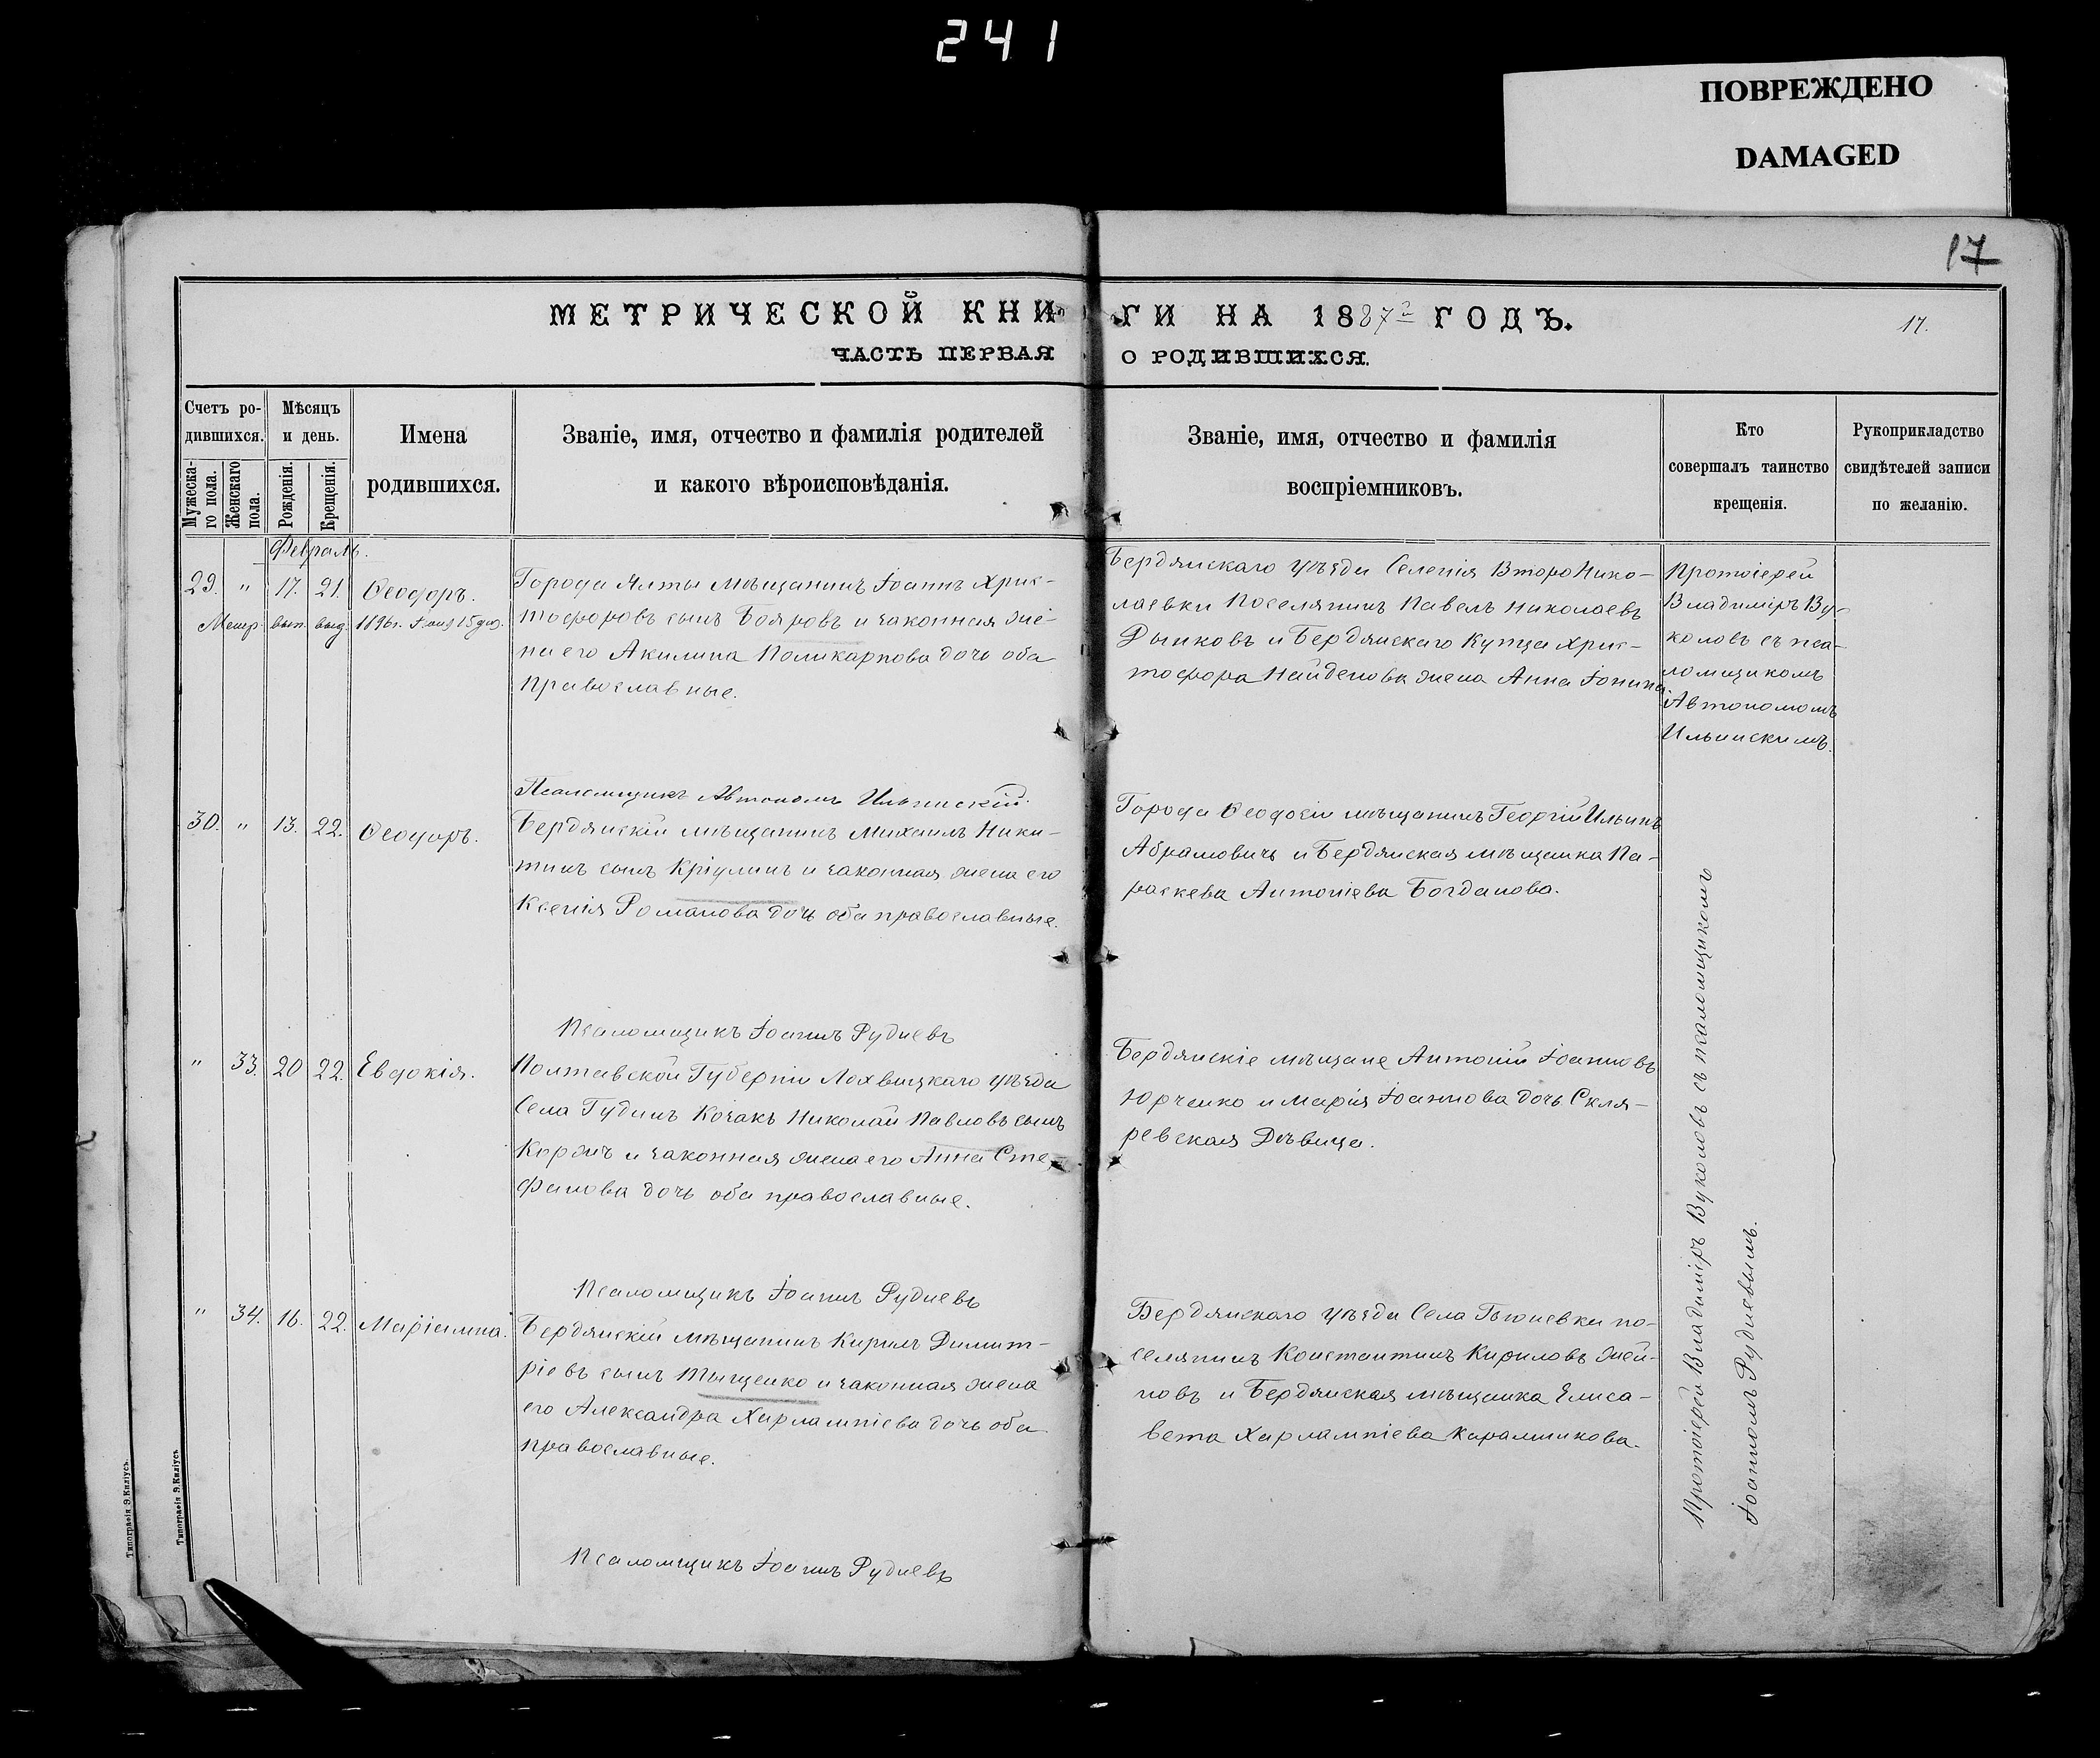 241
ПОВРЕЖДЕНО
DAMAGED
17
МЕТРИЧЕСКОЙ КНИ-ГИ НА 1887й ГОДЪ.
17.
ЧАСТЬ ПЕРВАЯ О РОДИВШИХСЯ.
Счетъ ро-
дившихся.
Мужеска-
го пола.
Женскаго
пола.
Мѣсяцъ
и день.
Рожденія.
Крещенія.
Имена
родившихся.
Званіе, имя, отчество и фамилія родителей
и какого вѣроисповѣданія.
Званіе, имя, отчество и фамилія
воспріемниковъ.
Кто
совершалъ таинство
крещенія.
Рукоприкладство
свидѣтелей записи
по желанію.
Февраль.
29. " 17. 21. Ѳеодоръ.
Метр. вып. выд. 1896г.
Города Ялты мѣщанинъ Іоаннъ Хрис-
тофоровъ сынъ Бояровъ и законная же-
на его Акилина Поликарпова дочь оба
православные.
Бердянскаго уѣзда Селенія ВтороНико-
лаевки Поселянинъ Павелъ Николаевъ
Дышковъ и Бердянскаго Купца Хрис-
тофора Найденова жена Анна Іонина
Протоіерей
Владиміръ Ву-
коловъ съ пса-
ломщикомъ
Автономомъ
Ильинскимъ.
Псаломщикъ Автономъ Ильинскій.
30. " 13. 22. Ѳеодоръ.
Бердянскій мѣщанинъ Михаилъ Ники-
тинъ сынъ Кріулинъ и законная жена его
Ксенія Романова дочь оба православные.
Города Ѳеодосіи мѣщанинъ Георгій Ильинъ
Абрамовичъ и Бердянская мѣщанка Па-
раскева Антоніева Богданова.
Псаломщикъ Іоаннъ Рудневъ
" 33. 20 22. Евдокія.
Полтавской Губерніи Лохвицкаго уѣзда
Села Гудимъ Козакъ Николай Павловъ сынъ
Коржъ и законная жена его Анна Сте-
фанова дочь оба православные.
Бердянскіе мѣщане Антоній Іоанновъ
Юрченко и Марія Іоаннова дочь Скля-
ревская Дѣвица.
Псаломщикъ Іоаннъ Рудневъ
" 34. 16. 22. Маріамна.
Бердянскій мѣщанинъ Кирилъ Димит-
ріевъ сынъ Тыщенко и законная жена
его Александра Харлампіева дочь оба
православные.
Бердянскаго уѣзда Села Гюневки по-
селянинъ Константинъ Кириловъ Жей-
новъ и Бердянская мѣщанка Елиса-
вета Харлампіева Карамникова.
Протоіерей Владиміръ Вуколовъ съ псаломщикомъ
Іоанномъ Рудневымъ.
Псаломщикъ Іоаннъ Рудневъ
Типографія Э.Киліусъ.
Типографія Э.Киліусъ